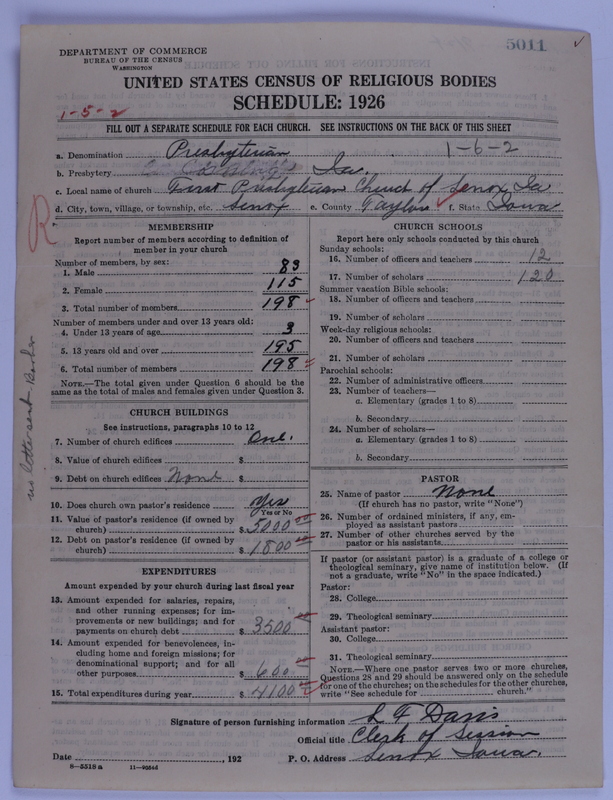 5011
DEPARTMENT OF COMMERCE
BUREAU OF THE CENSUS
WASHINGTON
UNITED STATES CENSUS OF RELIGIOUS BODIES
SCHEDULE: 1926
1-5-2
FILL OUT A SEPARATE SCHEDULE FOR EACH CHURCH. SEE INSTRUCTIONS ON THE BACK OF THIS SHEET
a. Denomination Presbyterian 1-6-2
b. Presbytery Ia
c. Local name of church First Presbyterian Church of Lenox Ia
d. City, town, village, or township, etc. Lenox e. County Taylor f. State Iowa
R
MEMBERSHIP
Report number of members according to definition of
member in your church
Number of members, by sex:
1. Male 83
2. Female 115
3. Total number of members 198
Number of members under and over 13 years old:
4. Under 13 years of age 3
5. 13 years old and over 195
6. Total number of members 198
NOTE.—The total given under Question 6 should be the
same as the total of males and females given under Question 3.
CHURCH BUILDINGS
See instructions, paragraphs 10 to 12
7. Number of church edifices One.
8. Value of church edifices $
9. Debt on church edifices None $
10. Does church own pastor's residence Yes
Yes or No
11. Value of pastor's residence (if owned by
church) $ 5000 00
12. Debt on pastor's residence (if owned by
church) $ 1800 00
EXPENDITURES
Amount expended by your church during last fiscal year
13. Amount expended for salaries, repairs,
and other running expenses; for im-
provements or new buildings; and for
payments on church debt $ 3500 00
14. Amount expended for benevolences, in-
cluding home and foreign missions; for
denominational support; and for all
other purposes $ 600 00
15. Total expenditures during year $ 4100 00
CHURCH SCHOOLS
Report here only schools conducted by this church
Sunday schools:
16. Number of officers and teachers 12
17. Number of scholars 120
Summer vacation Bible schools:
18. Number of officers and teachers
19. Number of scholars
Week-day religious schools:
20. Number of officers and teachers
21. Number of scholars
Parochial schools:
22. Number of administrative officers
23. Number of teachers—
a. Elementary (grades 1 to 8)
b. Secondary
24. Number of scholars—
a. Elementary (grades 1 to 8)
b. Secondary
PASTOR
25. Name of pastor None
(If church has no pastor, write "None")
26. Number of ordained ministers, if any, em-
ployed as assistant pastors
27. Number of other churches served by the
pastor or his assistants
If pastor (or assistant pastor) is a graduate of a college or
theological seminary, give name of institution below. (If
not a graduate, write "No" in the space indicated.)
Pastor:
28. College
29. Theological seminary
Assistant pastor:
30. College
31. Theological seminary
NOTE.—Where one pastor serves two or more churches,
Questions 28 and 29 should be answered only on the schedule
for one of the churches; on the schedules for the other churches,
write "See schedule for church."
Signature of person furnishing information L F Davis
Official title Clerk of Session
Date , 192 P. O. Address Lenox Iowa.
8-5518a 11-9254d